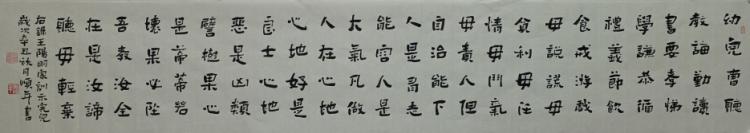 幼兒曹聽
教誨勤讀
書要孝悌
學謙恭循
禮義節飲
食戒游戲
毋說謊毋
貪利毋任
情毋鬥氣
毋責人但
自治能下
人是有志
能容人是
大氣凡做
人在心地
心地好是
良士心地
惡是凶類
譬樹果心
是蒂蒂若
壞果必墜
吾教汝全
在是汝諦
聽毋輕棄
右錄王陽明家訓示兒
歲次辛丑秋月順年書